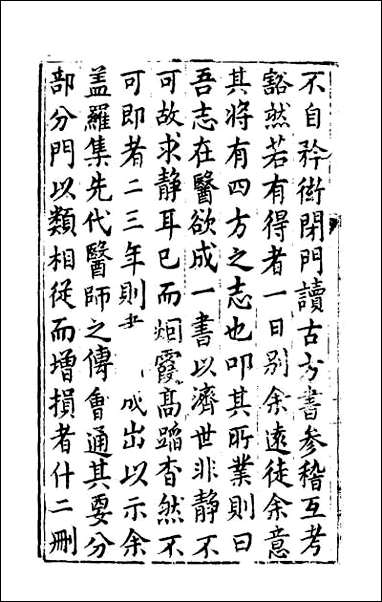 不自矜衒閉門讀古方書參稽互考
豁然若有得者一日别余遠徒余意
其將有四方之志也叩其所業則曰
吾志在醫欲成一書以濟世非静不
可故求静耳已而烟霞高蹈杳然不
可即者二三年則 成出以示余
盖羅集先代醫師之傳會通其要分
部分門以類相從而增損者什二刪